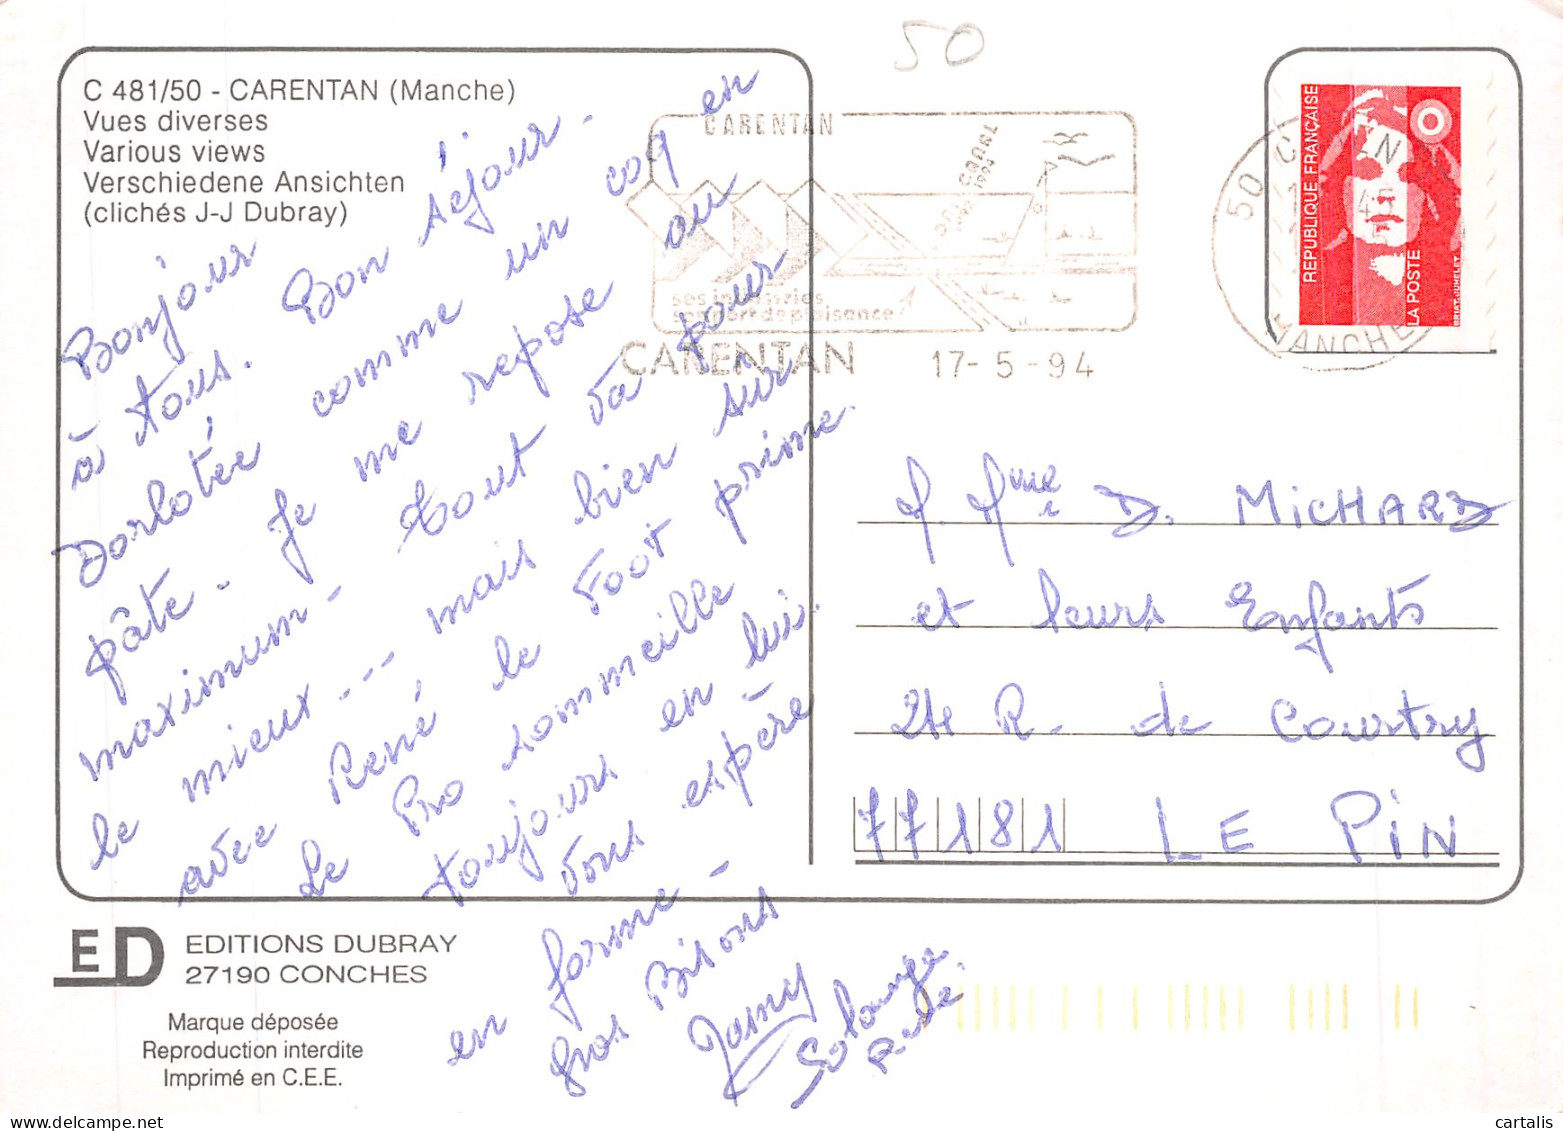 50
C 481/50 - CARENTAN (Manche)
Vues diverses
Various views
Verschiedene Ansichten
(clichés J-J Dubray)
Bonjour
à tous. Bon séjour.
Dorlotée comme un coq en
pâte - Je me repose au
maximum - Tout va pour
le mieux --- mais bien sûr
avec René le Foot prime.
Le Pro sommeille
toujours en lui.
Vous espère
en forme -
Gros Bisous
Solange
René
CARENTAN
ses industries
son port de plaisance
CARENTAN 17-5-94
50
MANCHE
45
REPUBLIQUE FRANÇAISE
LA POSTE
M. Mme D. MICHARD
et leurs Enfants
24 R. de Courtry
77181 LE PIN
ED
EDITIONS DUBRAY
27190 CONCHES
Marque déposée
Reproduction interdite
Imprimé en C.E.E.
cartalis